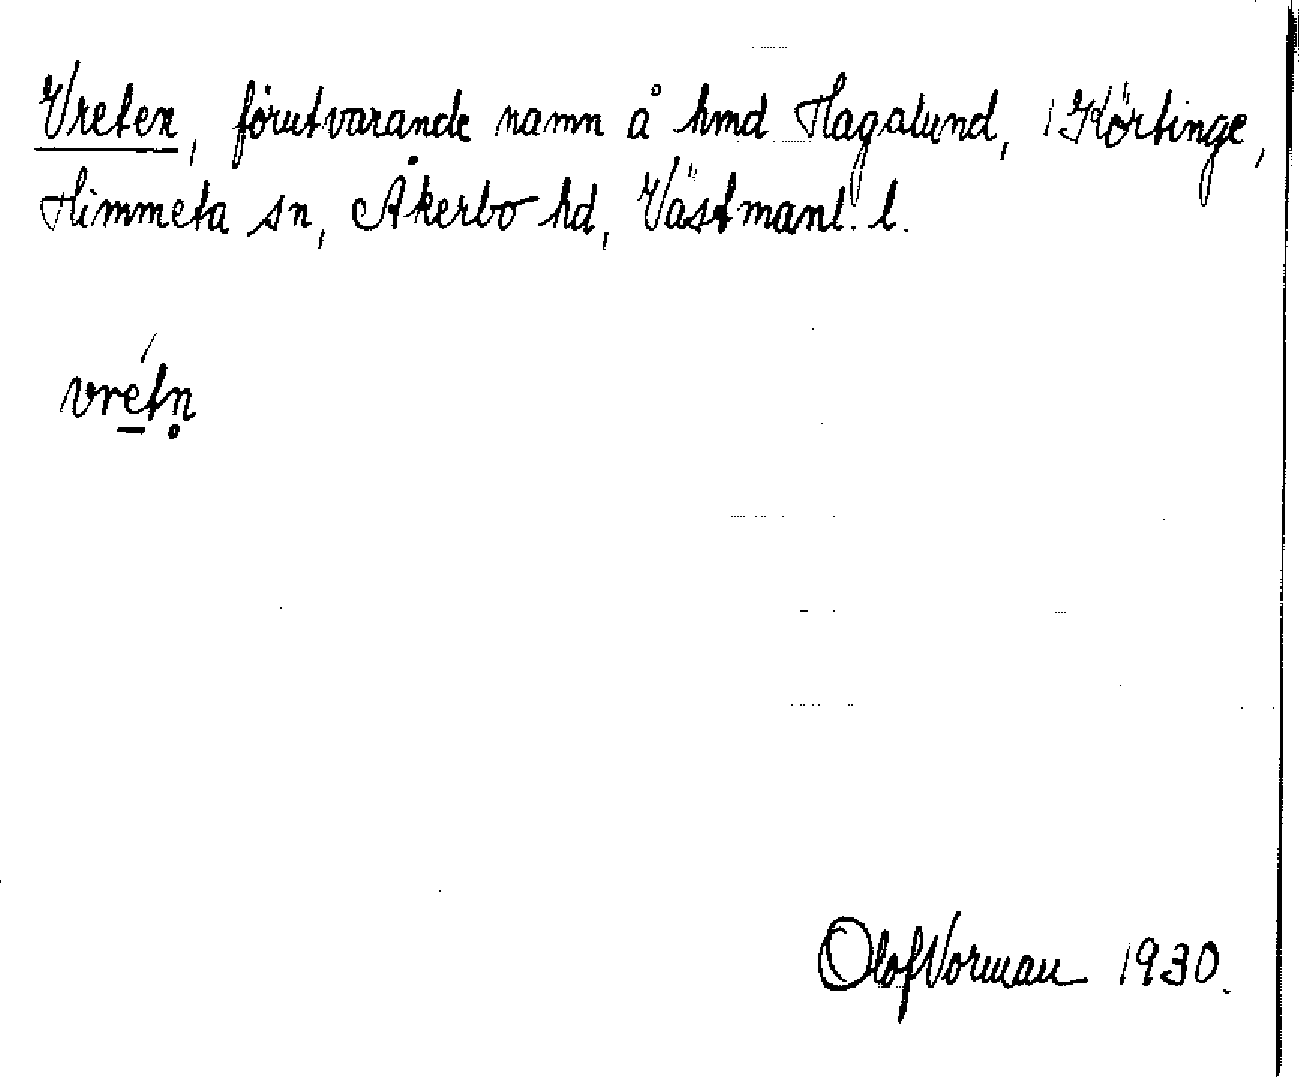 Vreten, förutvarande namn å hmd Hagalund, i Körtinge,
Himmeta sn, Åkerbo hd, Västmanl. l.
vré̱tn̥
Olof Vorman 1930.